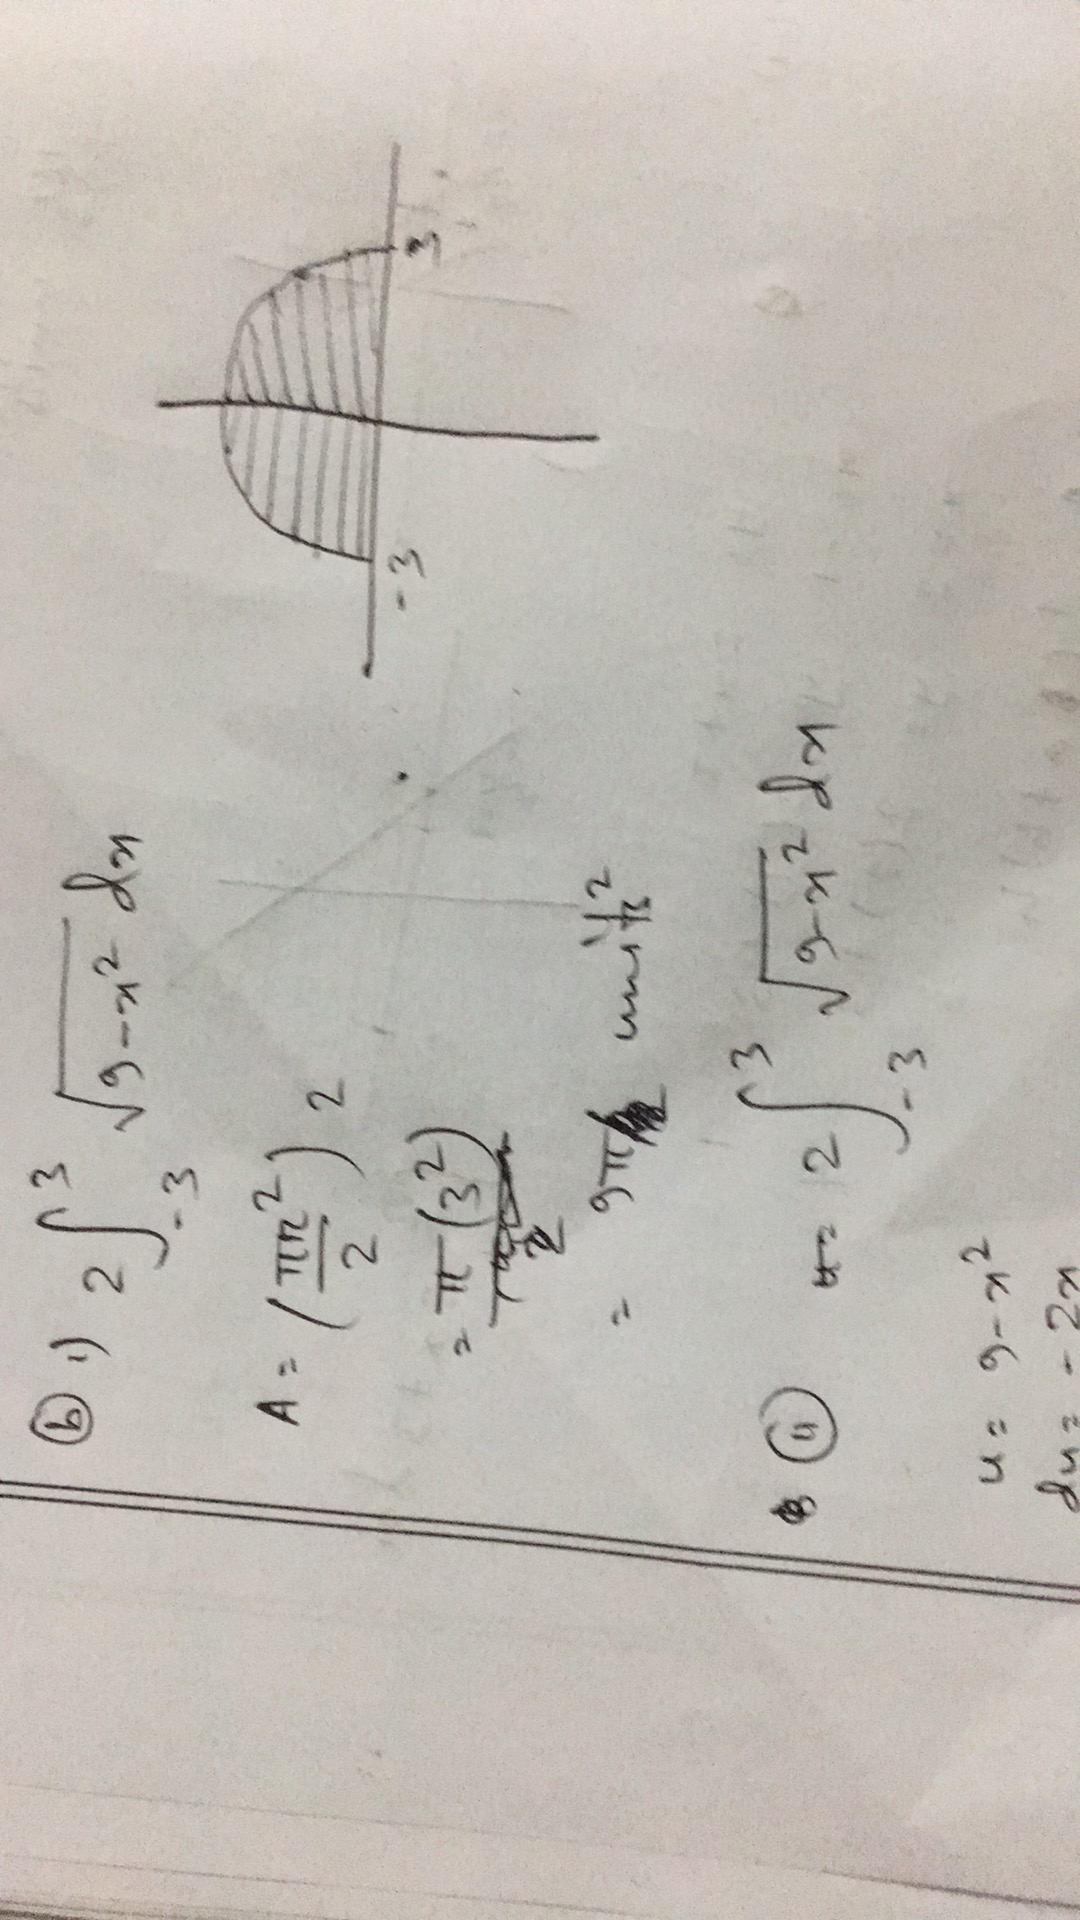 (b) i) 2 ∫₋₃³ √(9-x²) dx
3
-3
A = (πr²/2) 2
= π(3²)
= 9π unit²
(ii) 2 ∫₋₃³ √(9-x²) dx
u = 9-x²
du = -2x